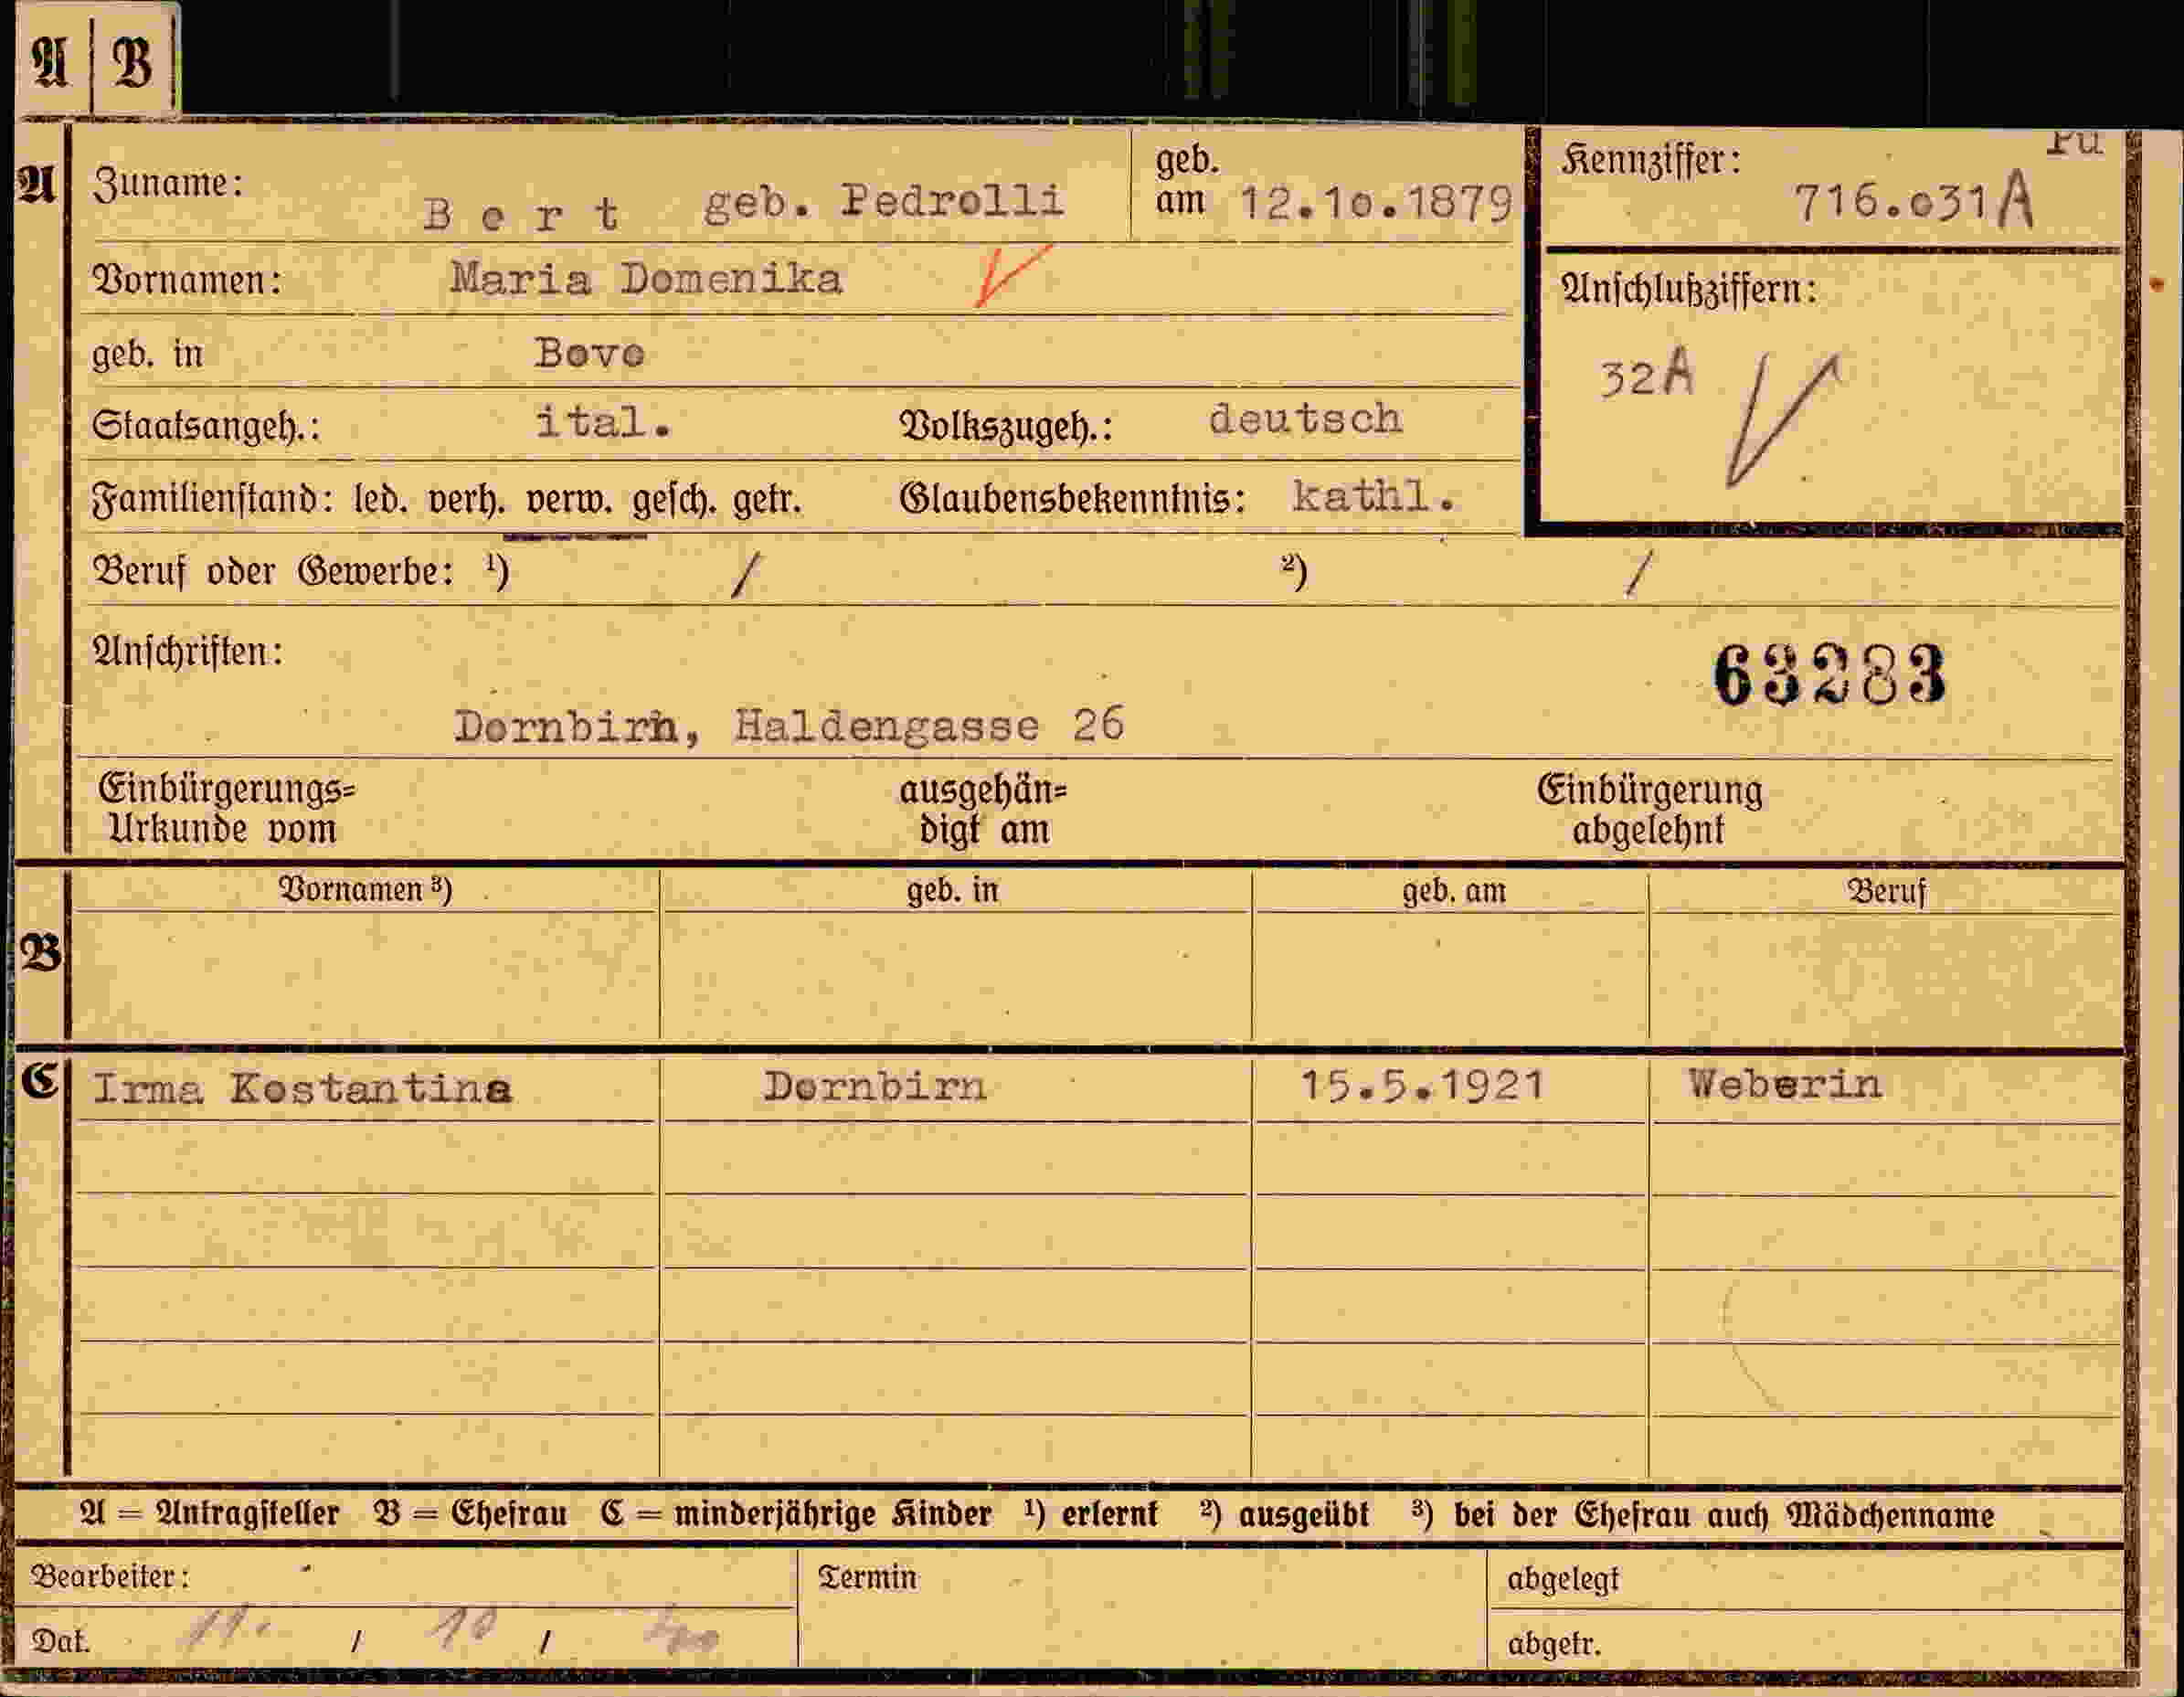 A B
A Zuname: B e r t geb. Pedrolli geb. am 12.10.1879
Kennziffer: 716.031A
Vornamen: Maria Domenika
Anschlußziffern:
geb. in Bovo
32A
Staatsangeh.: ital. Volkszugeh.: deutsch
Familienstand: led. verh. verw. gesch. getr. Glaubensbekenntnis: kathl.
Beruf oder Gewerbe: ¹) / ²) /
Anschriften:
63283
Dornbirn, Haldengasse 26
Einbürgerungs= ausgehän= Einbürgerung
Urkunde vom digt am abgelehnt
Vornamen ³) geb. in geb. am Beruf
B
C Irma Kostantina Dornbirn 15.5.1921 Weberin
A = Antragsteller B = Ehefrau C = minderjährige Kinder ¹) erlernt ²) ausgeübt ³) bei der Ehefrau auch Mädchenname
Bearbeiter: Termin abgelegt
Dat. 11. / 10 / 40 abgetr.